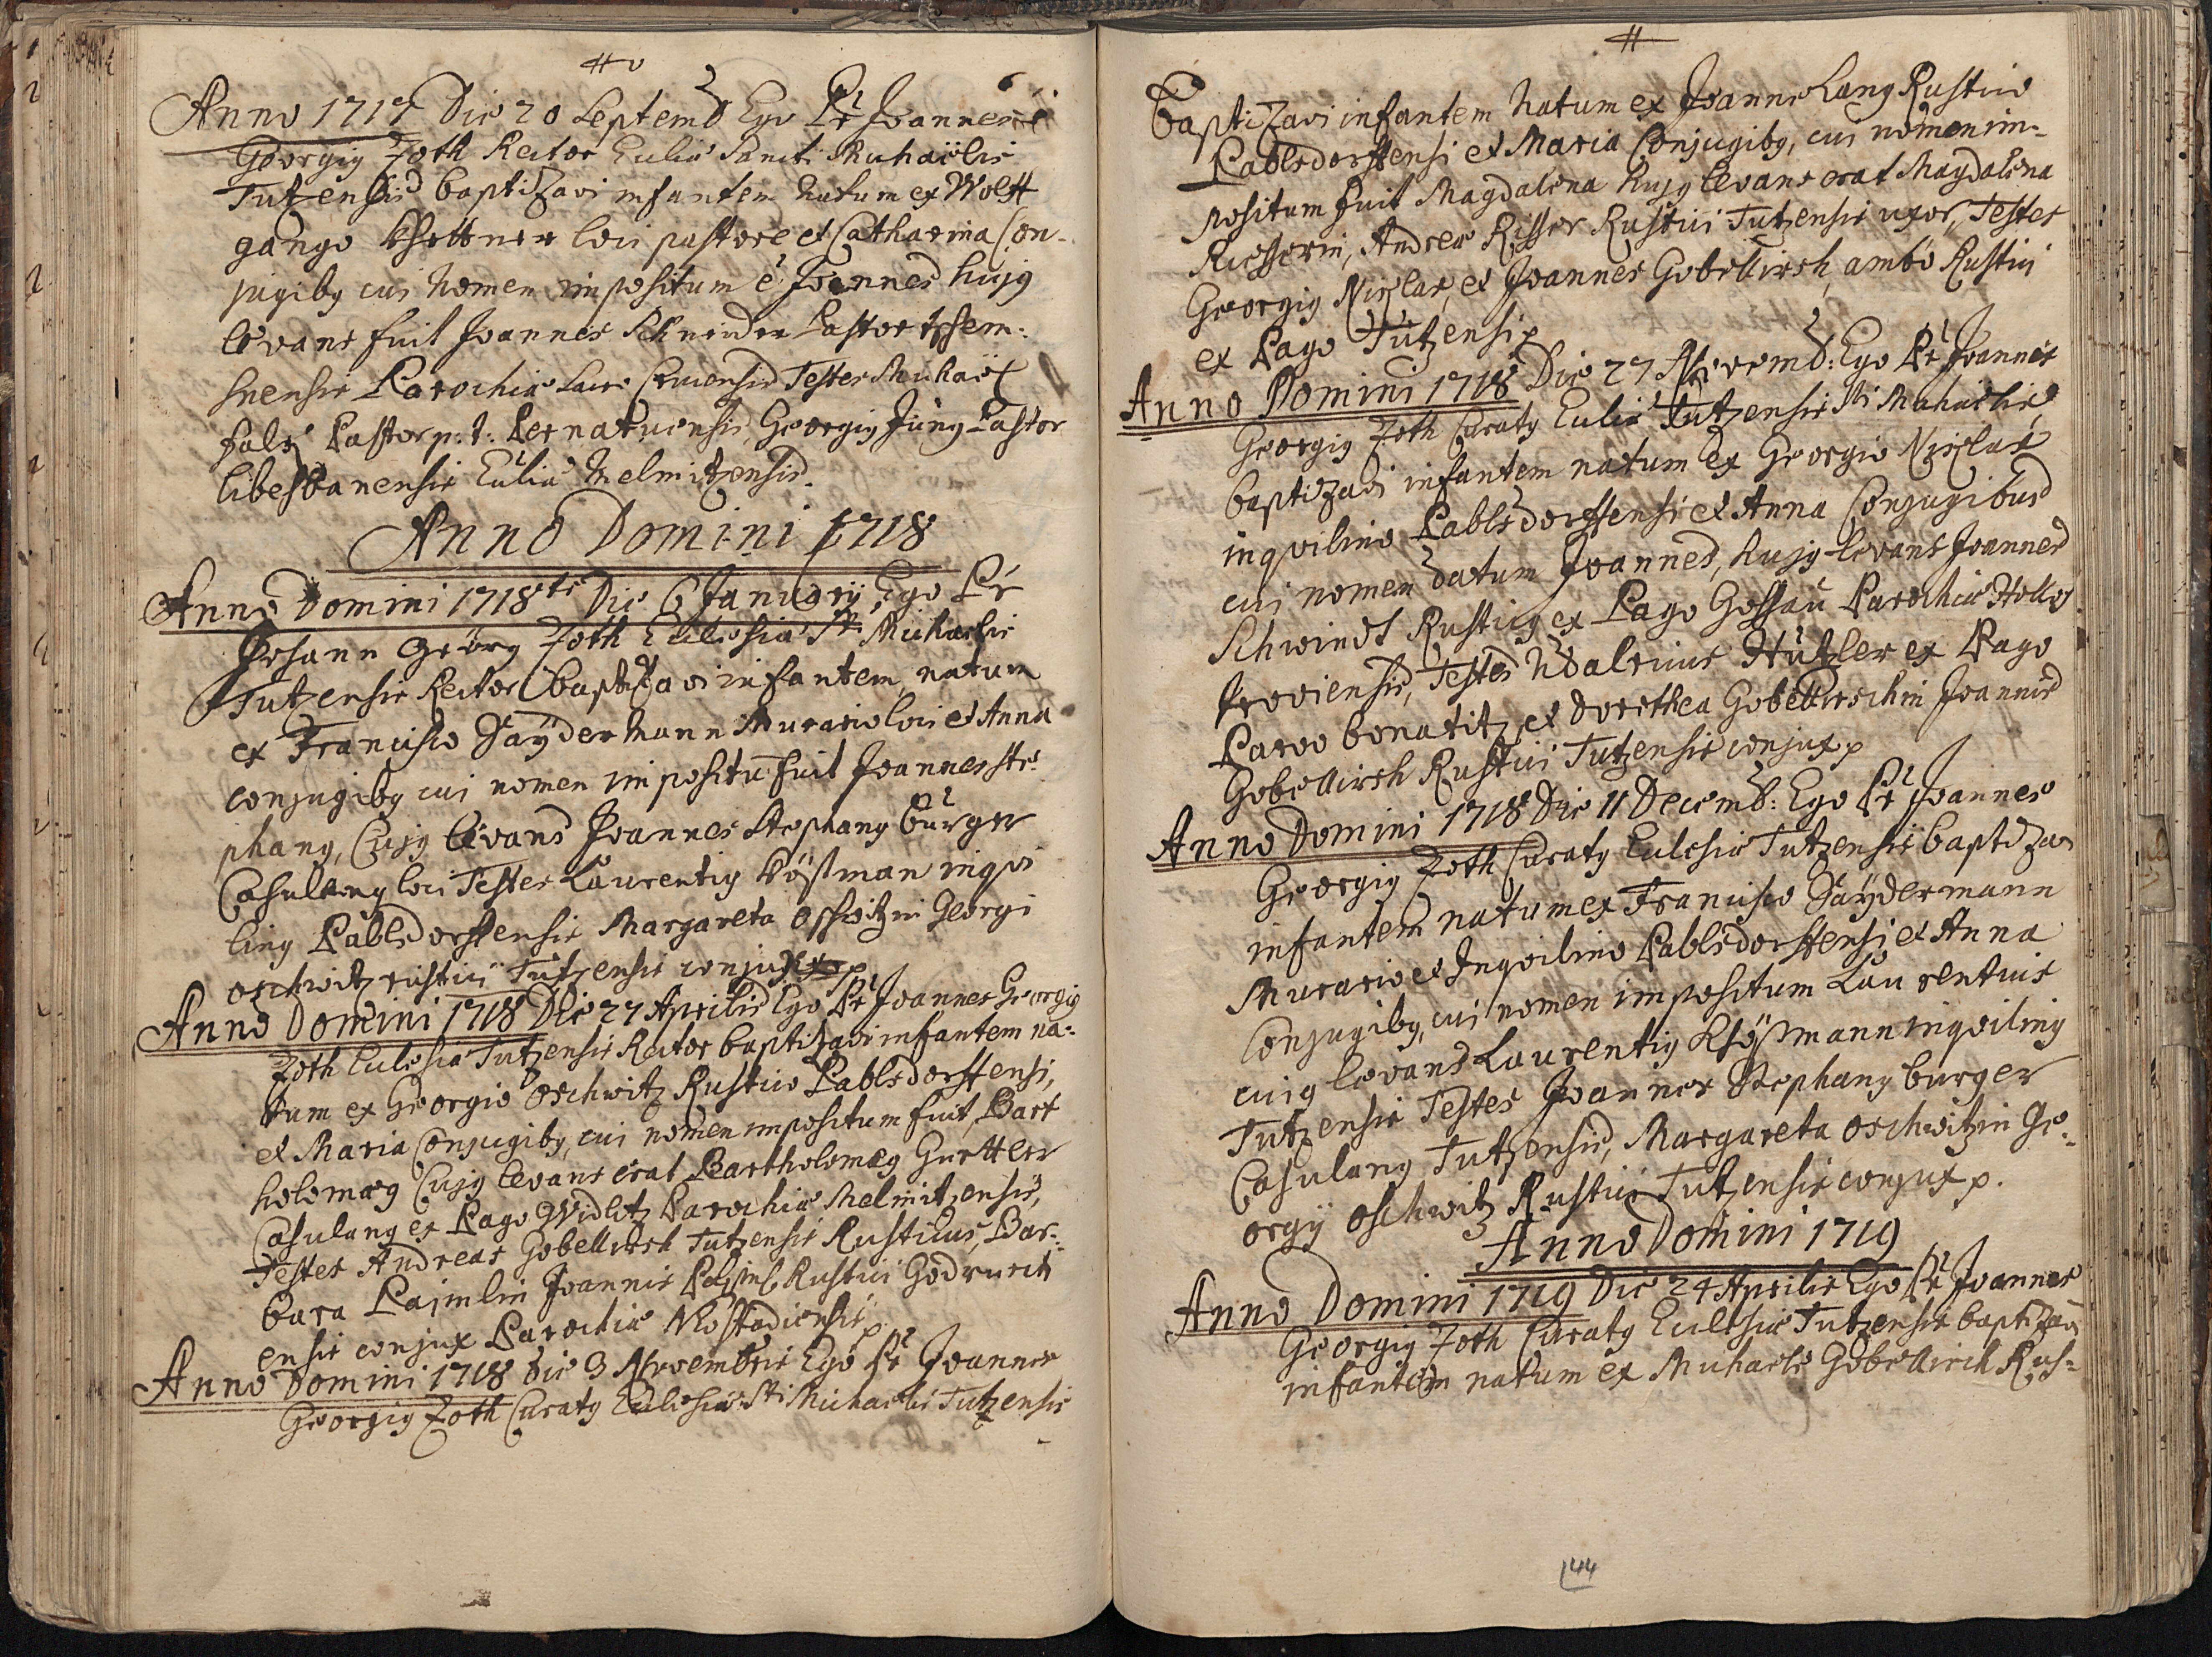 Anno 1717 Die 20 Septemb Ego Pr Joannes
Georgig Zoth Rector Eccliae Sancti Michaëlis
Tutzensis baptizavi infantem natum ex Wolff
gango loci pastore et Catharina Con-
jugibg cui nomen impositum è Joannes hujg
levans fuit Joannes Schneider Pastor
Parochiae Testes Michaël
Pastor p: t: Georgig Jung Pastor
Eccliae Melmitzensis.
Anno Domini 1718
Anno Domini 1718 Die 6 Januarij Ego Pr
Johann Georg Zoth Ecclesiae Sti Michaelis
Tutzensis Rector baptizavi infantem natum
ex Francisco Säÿdermann Murario loci et Anna
conjugibg cui nomen impositu fuit Joannes Ste-
phang, Cujg levans Joannes Stephang bürger
Casulang loci Testes Laurentig Kößman inqvi
ling Pablsdorffensis Margareta Georgi
oschwitz rustici Tutzensis conjux p
Anno Domini 1718 Die 27 Aprilis Ego Pr Joannes Georgig
Zoth Ecclesiae Tutzensis Rector baptizavi infantem na-
tum ex Georgio Oschwitz Rustico Pablsdorffensi,
et Maria Conjugibg, cui nomen impositum fuit, Bart
holomæg Cujg levans erat Bartholomæg Gurttler
Casulang ex Pago Widlitz Parochiae Melmitzensis,
Testes Andreas Gobellirsh Tutzensis Rusticus, Bar-
bara Pajmlin Joannis Rustici
ensis conjux Parochiae p
Anno Domini 1718 Die 3 Novembris Ego Pr Joannes
Georgig Zoth Curatg Ecclesiae Sti Michaelis Tutzensis
baptizavi infantem natum ex Joanne Lang Rustico
Pablsdorffensi et Maria Conjugibg, cui nomen im-
positum fuit Magdalena hujg levans erat Magdalena
Riesserin, Andreae Risser Rustici Tutzensis uxor, Testes
Georgig Nirlas, et Joannes Gobellirsh, ambo Rustici
ex Pago Tutzensi p
Anno Domini 1718 Die 27 Novemb: Ego Pr Joannes
Georgig Zoth Curatg Eccliae Tutzensis Sti Michaelis
baptizavi infantem natum ex Georgio Nirlas
inqvilino Pablsdorffensi et Anna Conjugibus
cui nomen datum Joannes, hujg levans Joannes
Schwindt Rusticg ex Pago Gossau Parochiae
Testes Udalricus Hützler ex Pago
Parvo bonatitz et Dorothea Gobellirschin Joannis
Gobellirsh Rustici Tutzensis conjux p
Anno Domini 1718 Die 11 Decemb: Ego Pr Joannes
Georgig Zoth Curatg Ecclesiae Tutzensis baptizavi
infantem natum ex Francisco Säÿdermann
Murario et Inqvilino Pablsdorffensi et Anna
Conjugibg, cui nomen impositum Laurentius
cuig levans Laurentig Kößmann inqviling
Tutzensis Testes Joannes Stephang burger
Casulang Tutzensis, Margareta Oschwitzin Ge-
orgij Oschwitz Rustici Tutzensis conjux p.
Anno Domini 1719
Anno Domini 1719 Die 24 Aprilis Ego Pr Joannes
Georgig Zoth Curatg Ecclesiae Tutzensis baptizavi
infantem natum ex Michaele Gobellirch Rus-
44